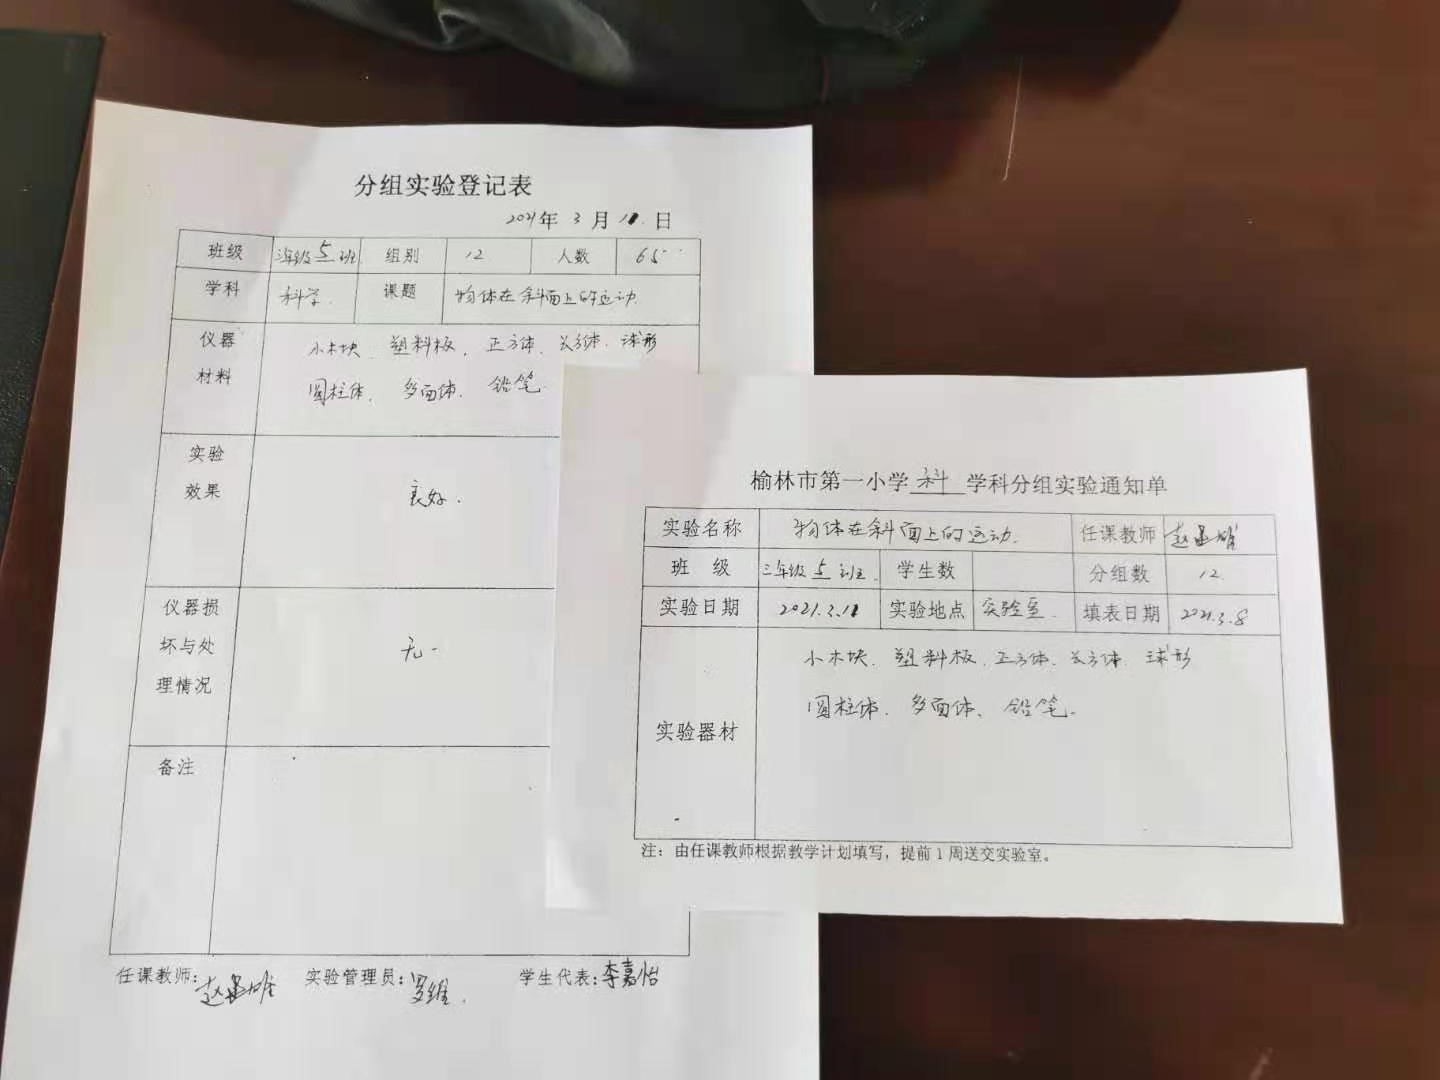 分组实验登记表
2021年 3 月 11 日
班级 三年级5班 组别 12 人数 65
学科 科学 课题 物体在斜面上的运动
仪器材料 小木块、塑料板、正方体、长方体、球形
圆柱体、多面体、铅笔
实验效果 良好.
仪器损坏与处理情况 无
备注
任课教师: 赵 雄 实验管理员: 罗维 学生代表: 李嘉怡
榆林市第一小学 科 学科分组实验通知单
实验名称 物体在斜面上的运动. 任课教师 赵 雄
班 级 三年级5班 学生数 分组数 12
实验日期 2021.3.11 实验地点 实验室. 填表日期 2021.3.8
实验器材 小木块、塑料板、正方体、长方体、球形
圆柱体、多面体、铅笔.
注：由任课教师根据教学计划填写，提前 1 周送交实验室。